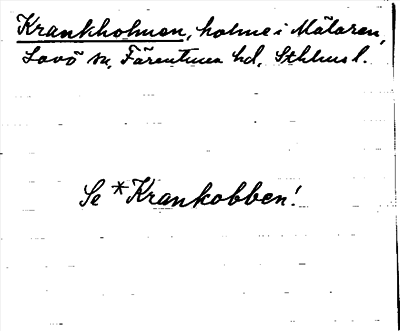 Krankholmen, holme i Mälaren,
Lovö sn, Färentuna hd, Sthlms l.
Se *Krankobben!